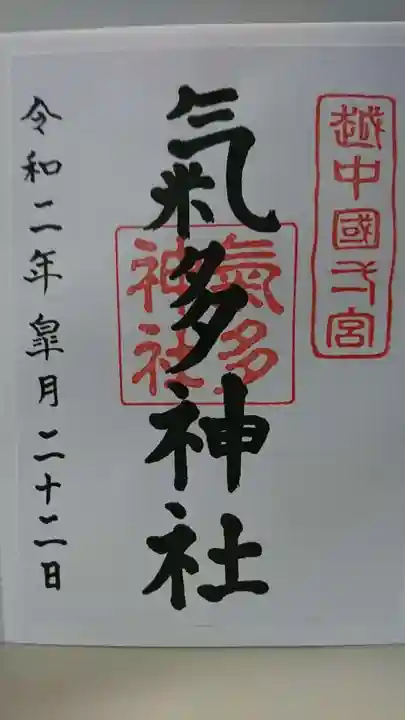 越中國一宮
氣多神社
氣多神社
令和二年皐月二十二日